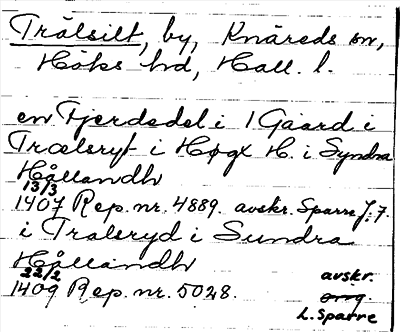 Trälsilt, by, Knäreds sn,
Höks hd, Hall. l.
en Fjerdedel i 1 Gaard i
Trælsryt i Høgx H. i Syndra
Hållandh
13/3
1407 Rep. nr. 4889. avskr. Sparre J: 7.
i Tralsryd i Sundra
Hållandh
22/2
1409 Rep. nr. 5028.
avskr.
orig.
L. Sparre